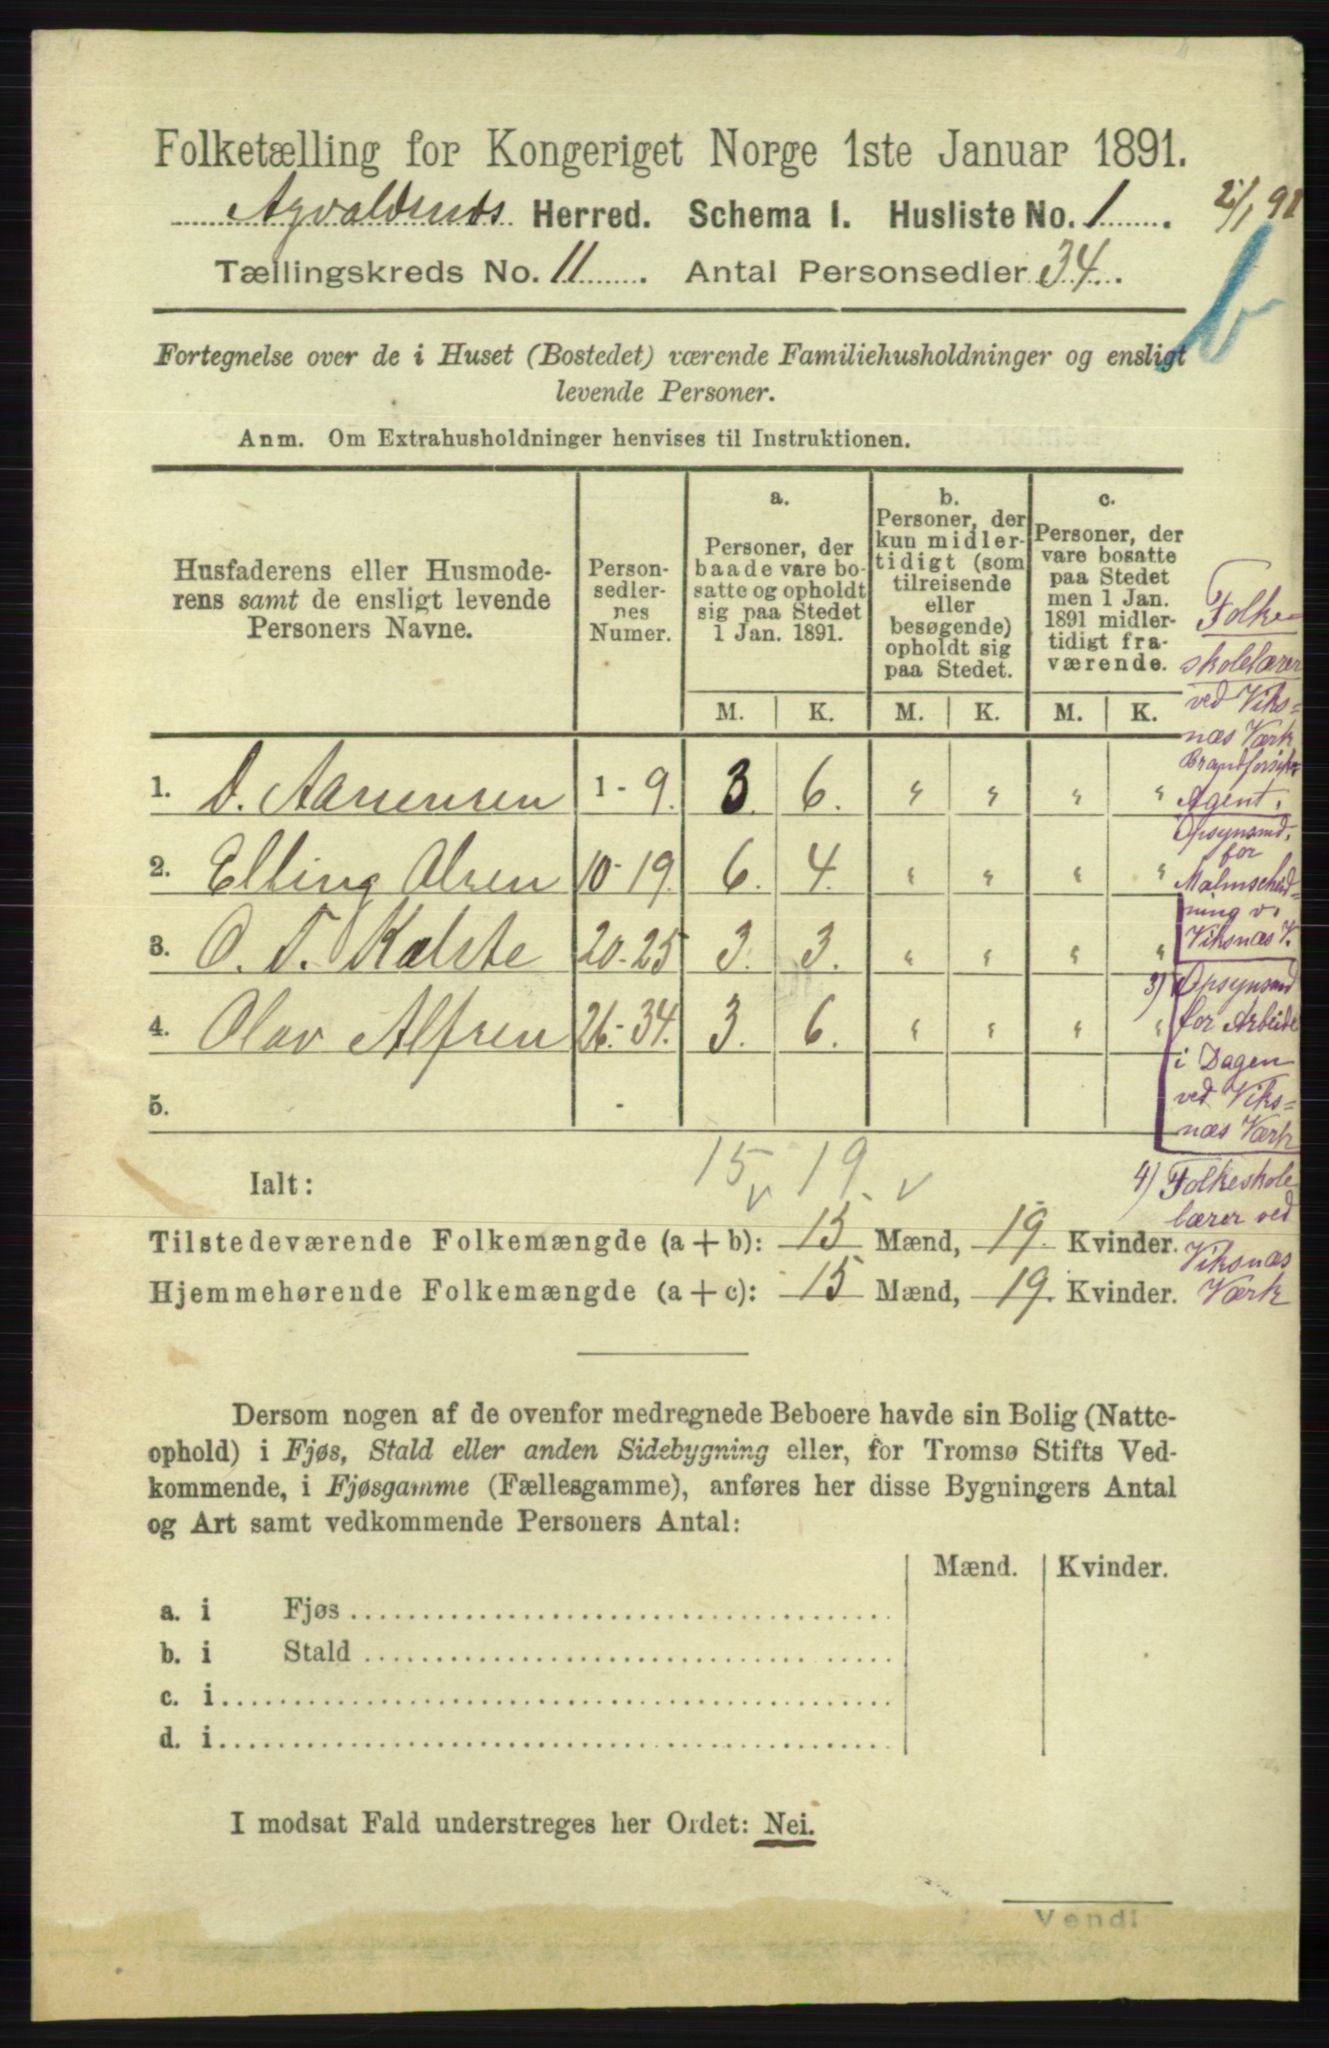 Folketælling for Kongeriget Norge 1ste Januar 1891.
Agvaldsnæs Herred. Schema I. Husliste No. 1.
2/1 91
Tællingskreds No. 11. Antal Personsedler 34.
b
Fortegnelse over de i Huset (Bostedet) værende Familiehusholdninger og ensligt
levende Personer.
Anm. Om Extrahusholdninger henvises til Instruktionen.
Husfaderens eller Husmode-
rens samt de ensligt levende
Personers Navne.
Person-
sedler-
nes
Numer.
a.
Personer, der
baade vare bo-
satte og opholdt
sig paa Stedet
1 Jan. 1891.
b.
Personer, der
kun midler-
tidigt (som
tilreisende
eller
besøgende)
opholdt sig
paa Stedet.
c.
Personer, der
vare bosatte
paa Stedet
men 1 Jan.
1891 midler-
tidigt fra-
værende.
M. K. M. K. M. K.
1. D. Aanensen 1 - 9. 3. 6. " " " "
2. Elling Olsen 10 - 19. 6. 4. " " " "
3. O. T. Kalste 20 - 25 3. 3. " " " "
4. Olav Alfsen 26 - 34. 3. 6. " " " "
5. -
Folke-
skolelærer
ved Viks=
næs Værk
Brandforsikr.
Agent.
Opsynsmd.
for
Malmscheid-
ning v.
Viksnæs V.
3) Opsynsmd
for Arbeide
i Dagen
ved Viks=
næs Værk
4) Folkeskole
lærer ved
Viksnæs
Værk
Ialt: 15 v 19. v
Tilstedeværende Folkemængde (a + b): 15 Mænd, 19. Kvinder.
Hjemmehørende Folkemængde (a + c): 15 Mænd, 19. Kvinder.
Dersom nogen af de ovenfor medregnede Beboere havde sin Bolig (Natte-
ophold) i Fjøs, Stald eller anden Sidebygning eller, for Tromsø Stifts Ved-
kommende, i Fjøsgamme (Fællesgamme), anføres her disse Bygningers Antal
og Art samt vedkommende Personers Antal:
Mænd. Kvinder.
a. i Fjøs
b. i Stald
c. i
d. i
I modsat Fald understreges her Ordet: Nei.
Vend!